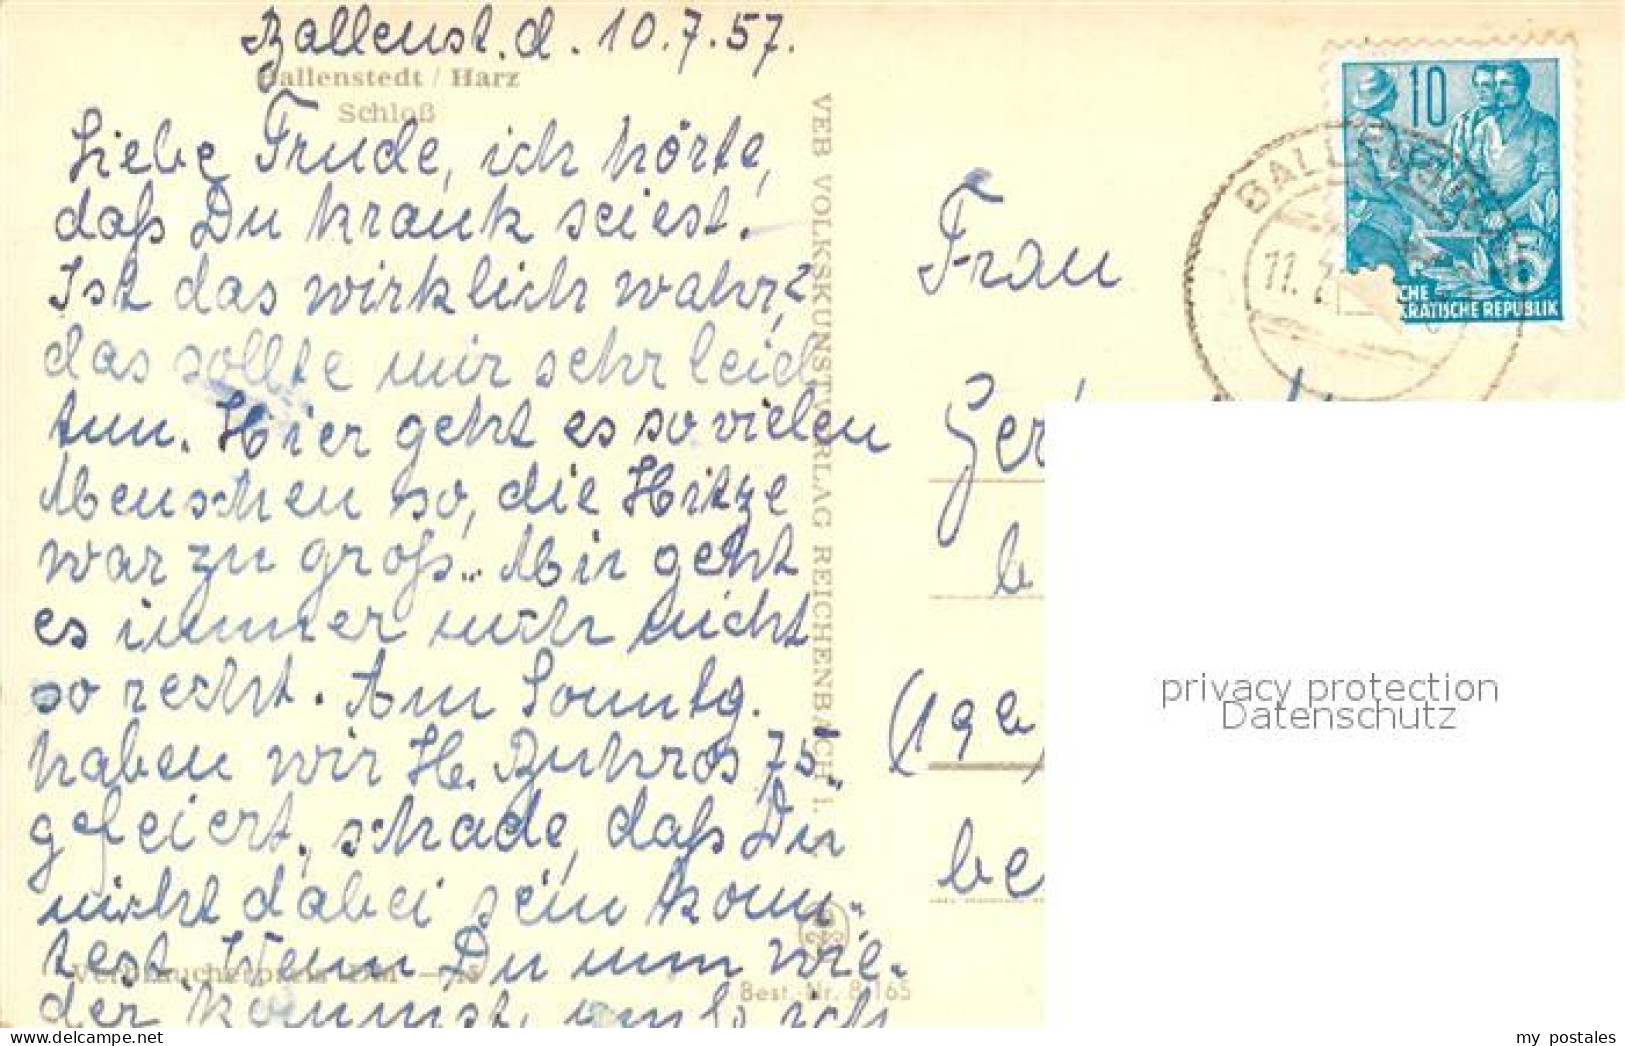 Ballenst. d. 10.7.57.
Ballenstedt / Harz
Schloß
Liebe Trude, ich hörte,
daß Du krank seiest.
Ist das wirklich wahr,?
das sollte mir sehr leid
tun. Hier geht es so vielen
Menschen so, die Hitze
war zu groß. Mir geht
es immer noch nicht
so recht. Am Sonntg.
haben wir H. 75.
gefeiert, schade, daß Du
nicht dabei sein konn-
test. Wenn Du nun wie-
der kommst, ich
Verbraucherpreis DM
VEB VOLKSKUNSTVERLAG REICHENBACH i. V.
Best.-Nr. 8/165
10
5
CHE
KRATISCHE REPUBLIK
BALLENSTEDT
11.
Frau
Ger
b
(19b)
be
privacy protection
Datenschutz
my postales